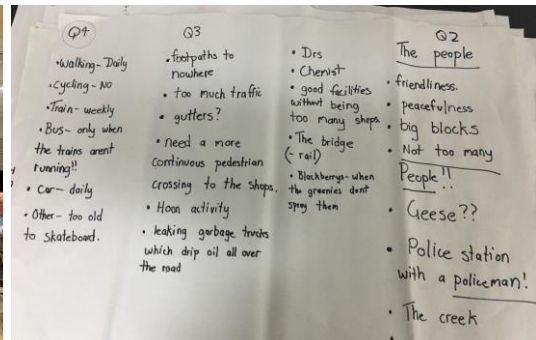 Q4
• Walking - Daily
• Cycling - NO
• Train - weekly
• Bus - only when
the trains arent
running!!
• Car - daily
• Other - too old
to skateboard.
Q3
• footpaths to
nowhere
• too much traffic
• gutters?
• need a more
continuous pedestrian
crossing to the shops.
• Hoon activity
• leaking garbage trucks
which drip oil all over
the road
• Drs
• Chemist
• good facilities
without being
too many shops
• The bridge
(- rail)
• Blackberrys - when
the greenies dont
spray them
Q2
The people
• friendliness.
• peacefulness
• big blocks
• Not too many
People!!
• Geese??
• Police station
with a policeman!
• The creek